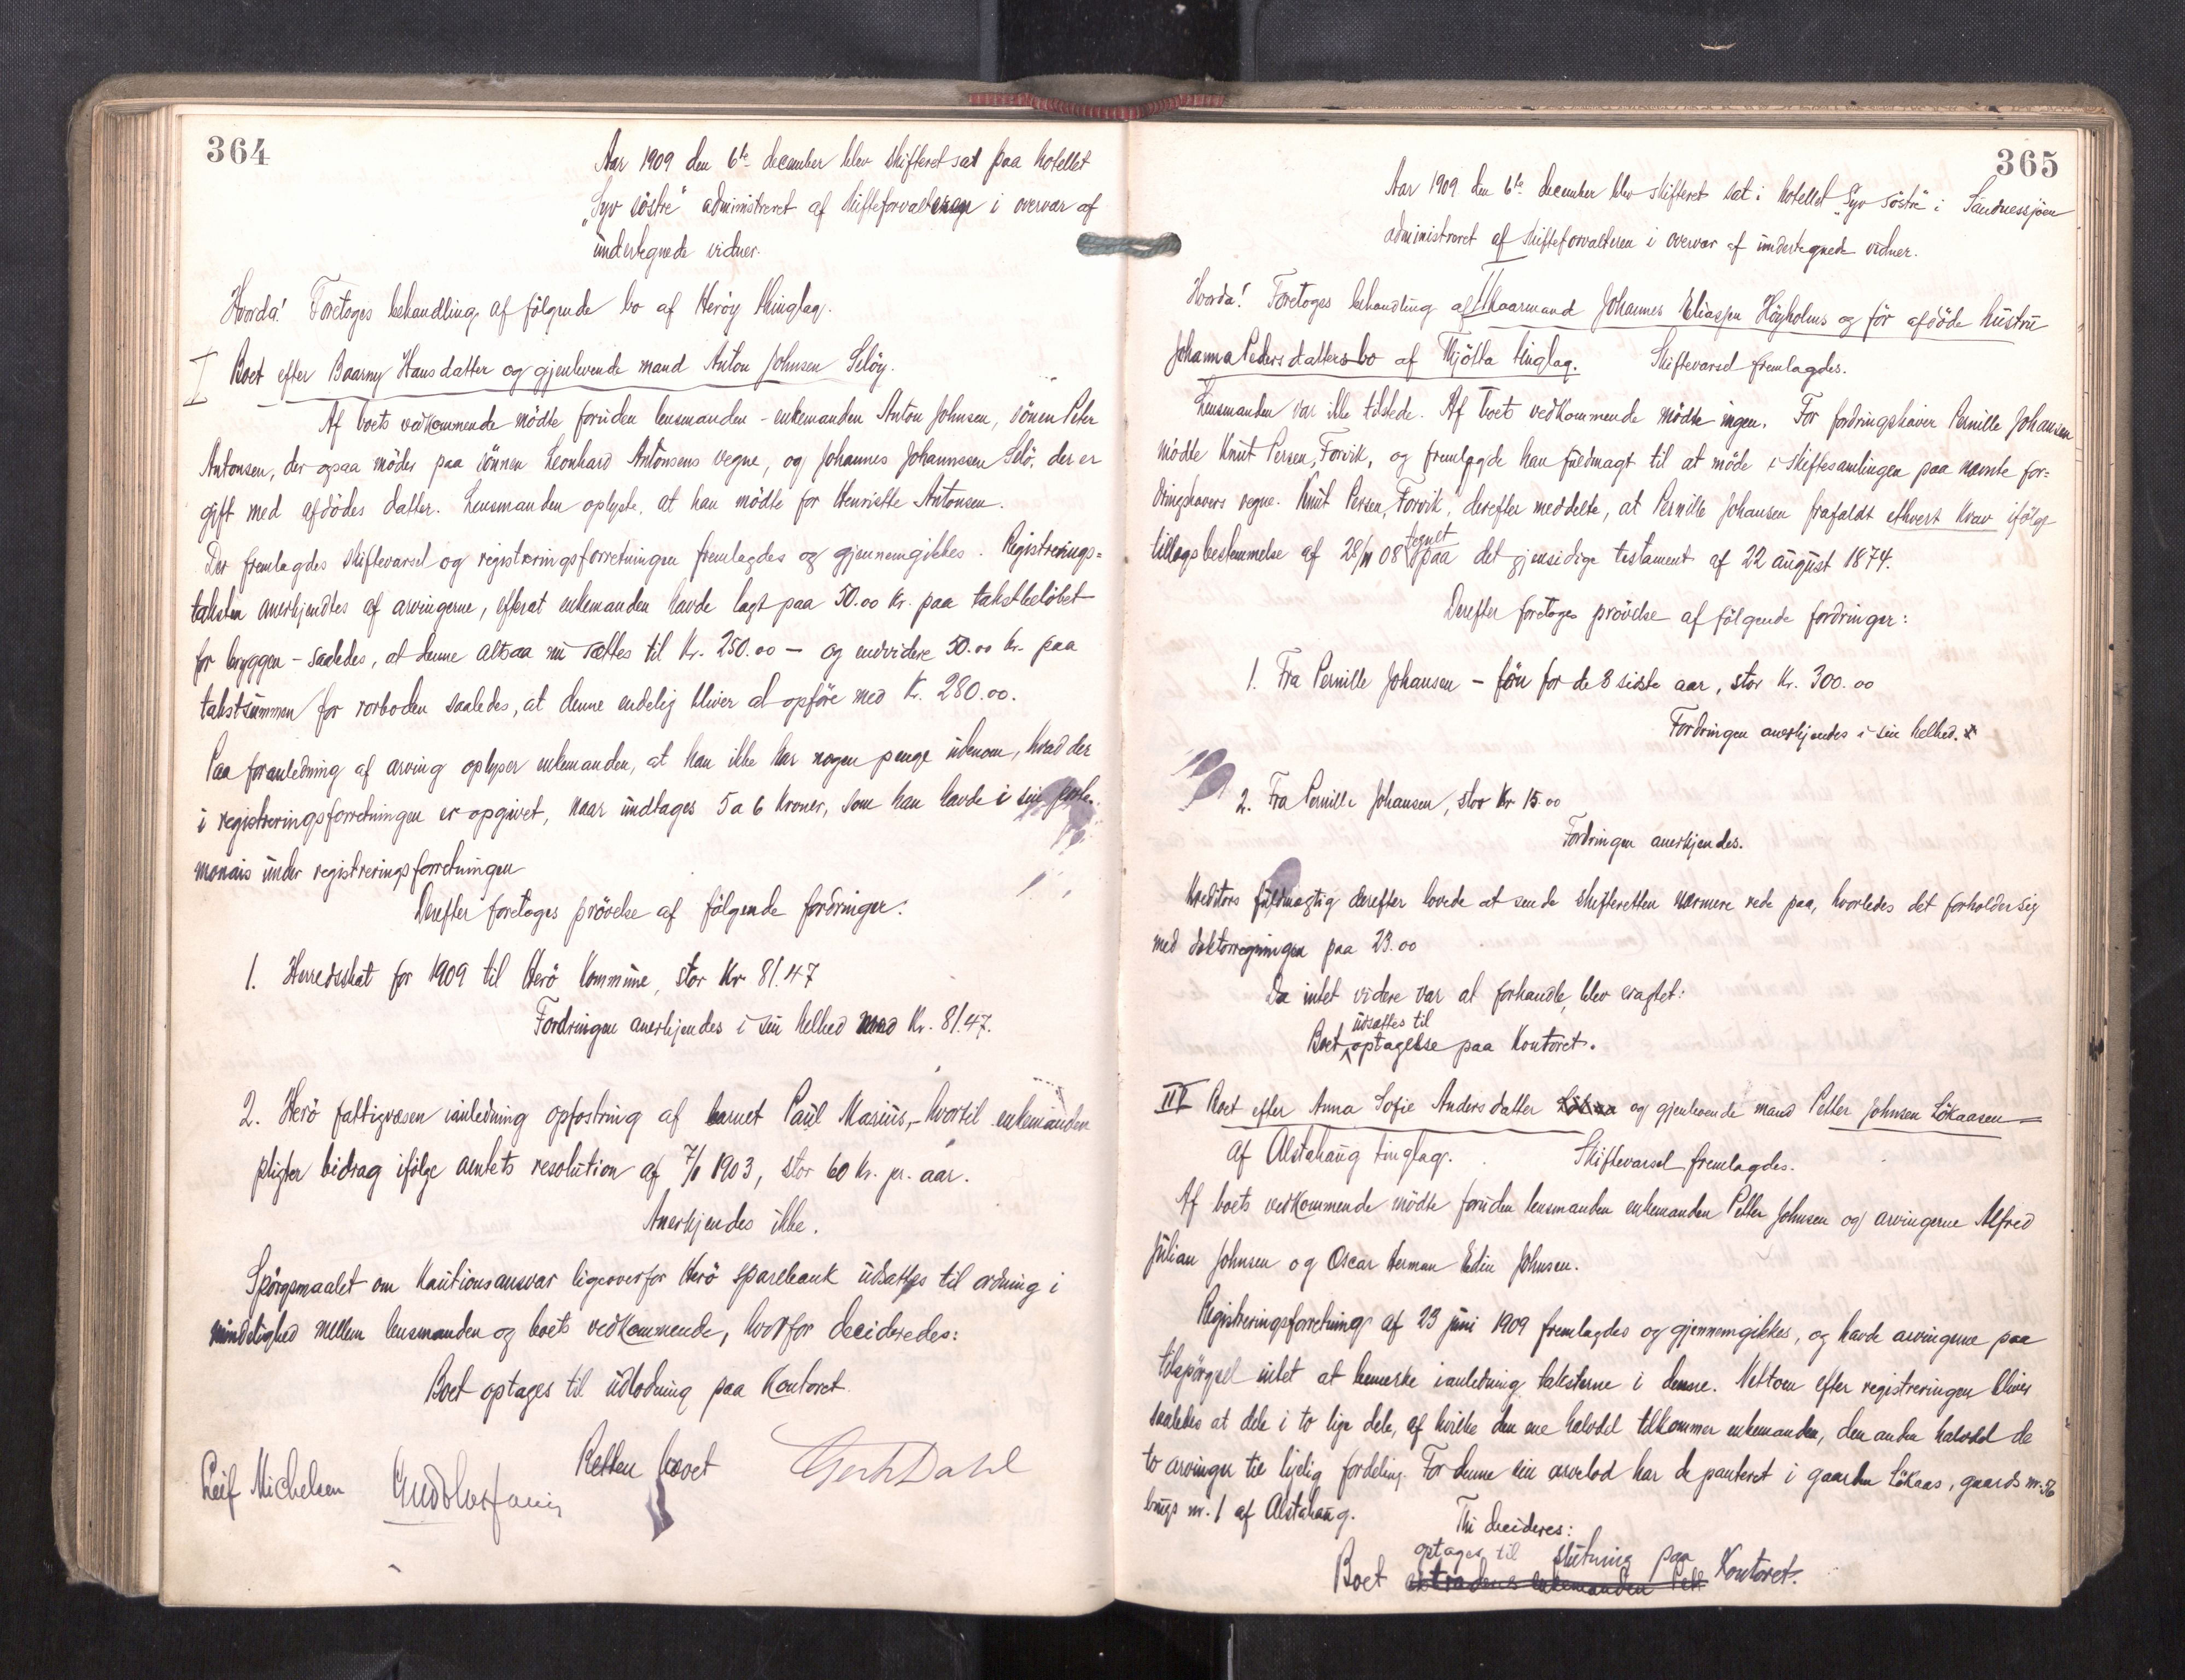 364
Aar 1909 den 6te december blev skifteret sat paa hotellet
„Syv söstre" administreret af skifteforvalteren i overvær af
undertegnede vidner.
Hvorda! Foretoges behandling af fölgende bo af Herøy thinglag.
I Boet efter Baarny Hansdatter og gjenlevende mand Anton Johnsen Seløy.
Af boets vedkommende mödte foruden lensmanden - enkemanden Anton Johnsen, sönen Peter
Antonsen, der ogsaa möder paa sönnen Leonhard Antonsens vegne, og Johannes Johannessen Selö, der er
gift med afdödes datter. Lensmanden oplyste, at han mödte for Henriette Antonsen.
Der fremlagdes skiftevarsel og registreringsforretningen fremlagdes og gjennemgikkes. Registrerings=
taksten anerkjendtes af arvingerne, efterat enkemanden havde lagt paa 50.00 kr. paa takstbelöbet
for bryggen - saaledes, at denne altsaa nu sættes til kr. 250.00 - og endvidere 50.00 kr. paa
takstsummen for rorboden saaledes, at denne endelig bliver at opföre med kr. 280.00.
Paa foranledning af arving oplyser enkemanden, at han ikke har nogen penge udenom, hvad der
i registreringsforretningen er opgivet, naar undtages 5 a 6 kroner, som han havde i sin porte-
monais under registreringsforretningen
Derefter foretoges prövelse af fölgende fordringer:
1. Herredsskat for 1909 til Herö kommune, stor kr 81.47
Fordringen anerkjendes i sin helhed med kr. 81.47.
2. Herö fattigvæsen ianledning opfostring af barnet Paul Marius, - hvortil enkemanden
pligter bidrag ifölge amtets resolution af 7/1 1903, stor 60 kr. pr. aar.
Anerkjendes ikke.
Spörgsmaalet om kautionsansvar ligeoverfor Herö sparebank udsættes til ordning i
mindelighed mellem lensmanden og boets vedkommende, hvorfor decideredes:
Boet optages til udlodning paa kontoret.
Retten hævet
Leif Michelsen Gerh Dahl
365
Aar 1909 den 6te december blev skifteret sat i hotellet „Syv söstre" i Sandnessjøen
administreret af skifteforvalteren i overvær af undertegnede vidner.
Hvorda! Foretoges behandling af II kaarmand Johannes Eliassen Höyholms og för afdöde hustru
Johanna Pedersdatters bo af Thjötta tinglag. Skiftevarsel fremlagdes.
Lensmanden var ikke tilstede. Af boets vedkommende mödte ingen. For fordringshaver Pernille Johansen
mödte Knut Persen, Forvik, og fremlagde han fuldmagt til at möde i skiftesamlingen paa nævnte for=
dringshavers vegne. Knut Persen, Forvik, derefter meddelte, at Pernille Johansen frafaldt ethvert krav ifölge
tegnet
tillægsbestemmelse af 28/11 08 paa det gjensidige testament af 22 august 1874.
Derefter foretoges prövelse af fölgende fordringer:
1. Fra Pernille Johansen - lön for de 8 sidste aar, stor kr. 300.00
Fordringen anerkjendes i sin helhed.
2. Fra Pernille Johansen, stor kr 15.00
Fordringen anerkjendes.
Kreditors fuldmægtig derefter lovede at sende skifteretten nærmere rede paa, hvorledes det forholder sig
med doktorregningen paa 23.00
Da intet videre var at forhandle, blev eragtet:
udsættes til
Boet optagelse paa kontoret.
III Boet efter Anna Sofie Andersdatter og gjenlevende mand Petter Johnsen Lökaasen
af Alstahaug tinglag. Skiftevarsel fremlagdes.
Af boets vedkommende mödte foruden lensmanden enkemanden Petter Johnsen og arvingerne Alfred
Julian Johnsen og Oscar Herman Edin Johnsen.
Registreringsforretning af 23 juni 1909 fremlagdes og gjennemgikkes, og havde arvingerne paa
tilspörgsel intet at bemerke ianledning taksterne i denne. Nettoen efter registreringen bliver
saaledes at dele i to lige dele, af hvilke den ene halvdel tilkommer enkemanden, den anden halvdel de
to arvinger til ligelig fordeling. For denne sin arvelod har de panteret i gaarden Lökaas, gaards nr. 56
brugs nr. 1 af Alstahaug.
Thi decideres:
optages til slutning paa
Boet ektraderes enkemanden Pett kontoret.